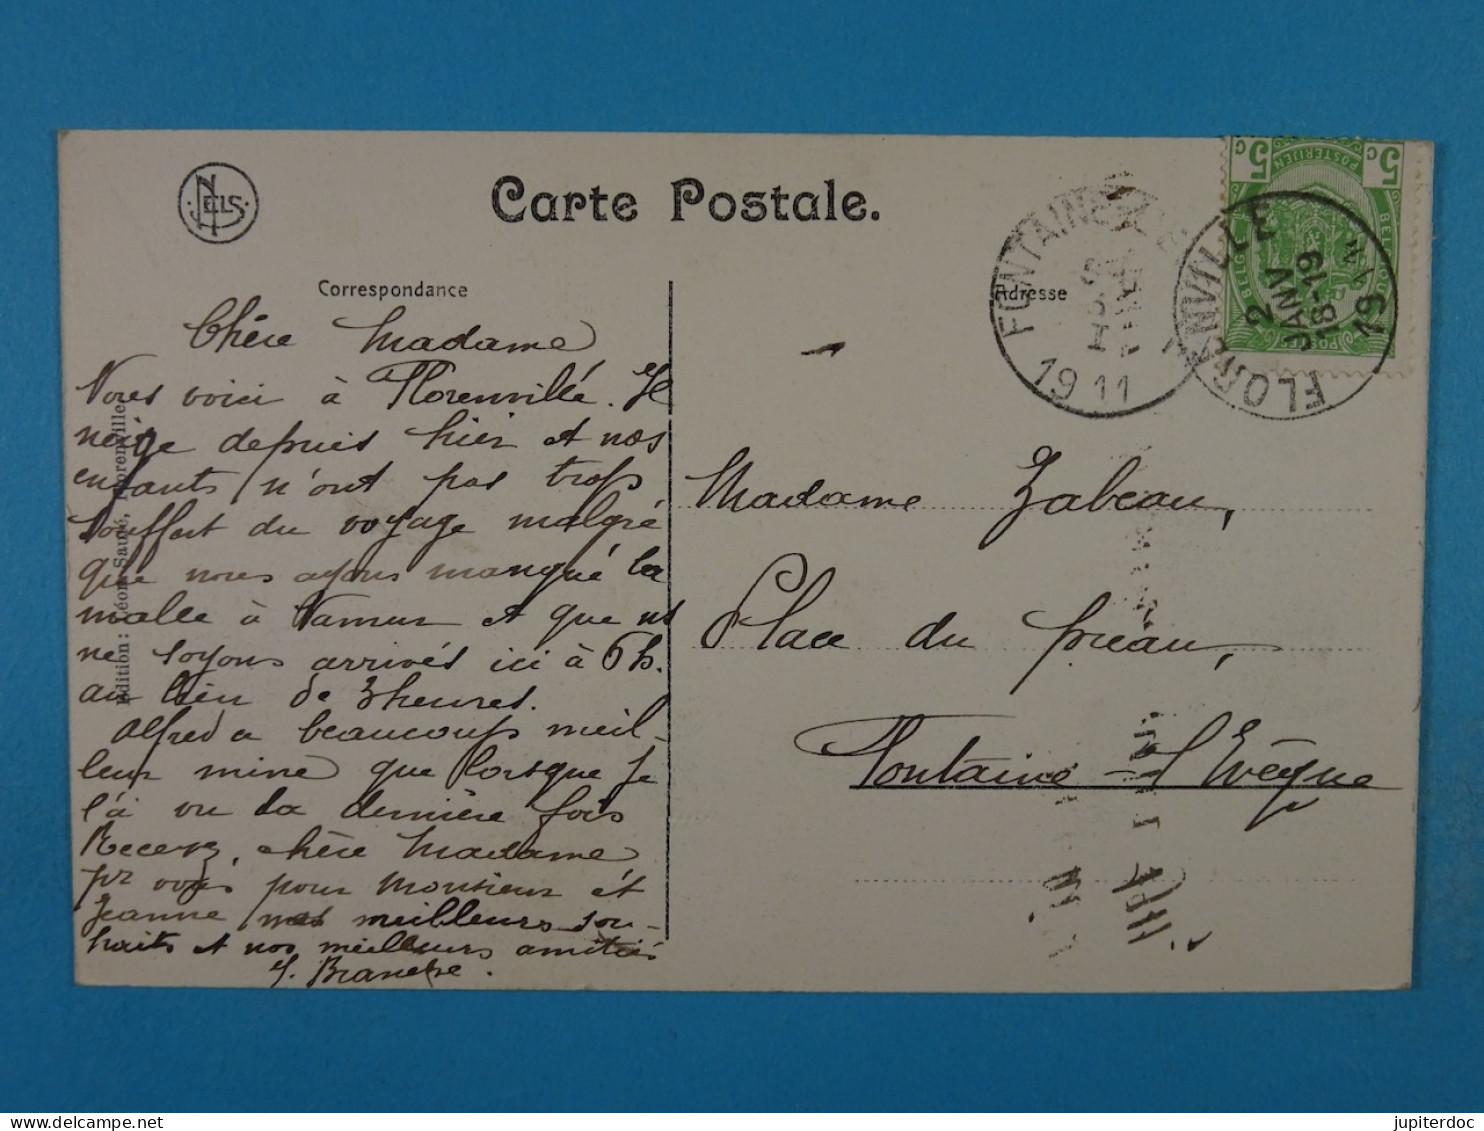 NELS
Carte Postale.
Correspondance
Adresse
Chère Madame
Nous voici à Florenville. Il
neige depuis hier et nos
enfants n'ont pas trop
souffert du voyage malgré
que nous ayons manqué la
malle à Namur et que ns
ne soyons arrivés ici à 6h.
au lieu de 3 heures.
Alfred a beaucoup meil-
leur mine que lorsque je
l'ai vu la dernière fois
Recevez, chère Madame
pr vous pour Monsieur et
Jeanne nos meilleurs sou-
haits et nos meilleurs amitiés
J.
Edition: Léon Florenville.
Madame Zabeau,
Place du préau,
Fontaine-l'Evêque
FONTAINE
1911
FLORENVILLE
2
JANV
18-19
1911
5c
POSTERIJEN
5c